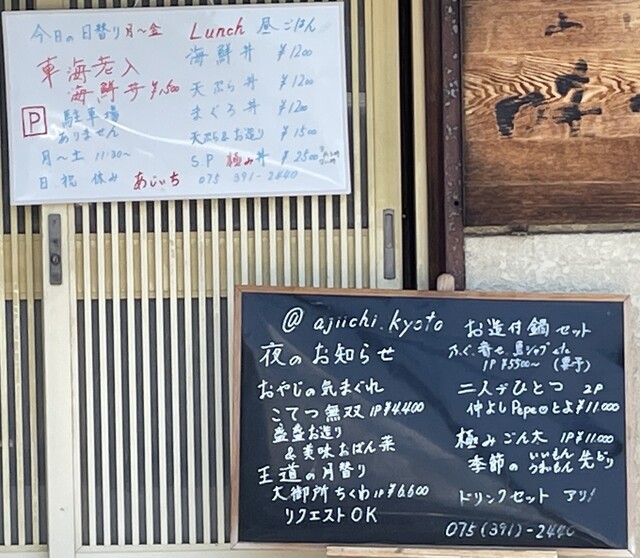 今日の日替り 月〜金
車海老入
海鮮丼 ¥1,500
P 駐車場
ありません
月〜土 11:30〜
日 祝 休み
Lunch 昼ごはん
海鮮丼 ¥1200
天ぷら丼 ¥1200
まぐろ丼 ¥1200
天ぷら&お造り ¥1500
SP 極み丼 ¥2500
あじいち 075 391-2440
@ajiichi.kyoto
夜のお知らせ
おやじの気まぐれ
こてつ無双 1P¥4,400
盛盛お造り
&美味おばん菜
王道の月替り
大御所ちくわ 1P¥6,600
リクエストOK
お造付鍋セット
ふぐ、寄せ、鳥シャブetc
1P ¥5500〜 (要予)
二人でひとつ 2P
仲よしPepeとよ¥11.000
極みごん太 1P¥11.000
季節のいいもんうまいもん先どり
ドリンクセット アリ!
075(391)-2440